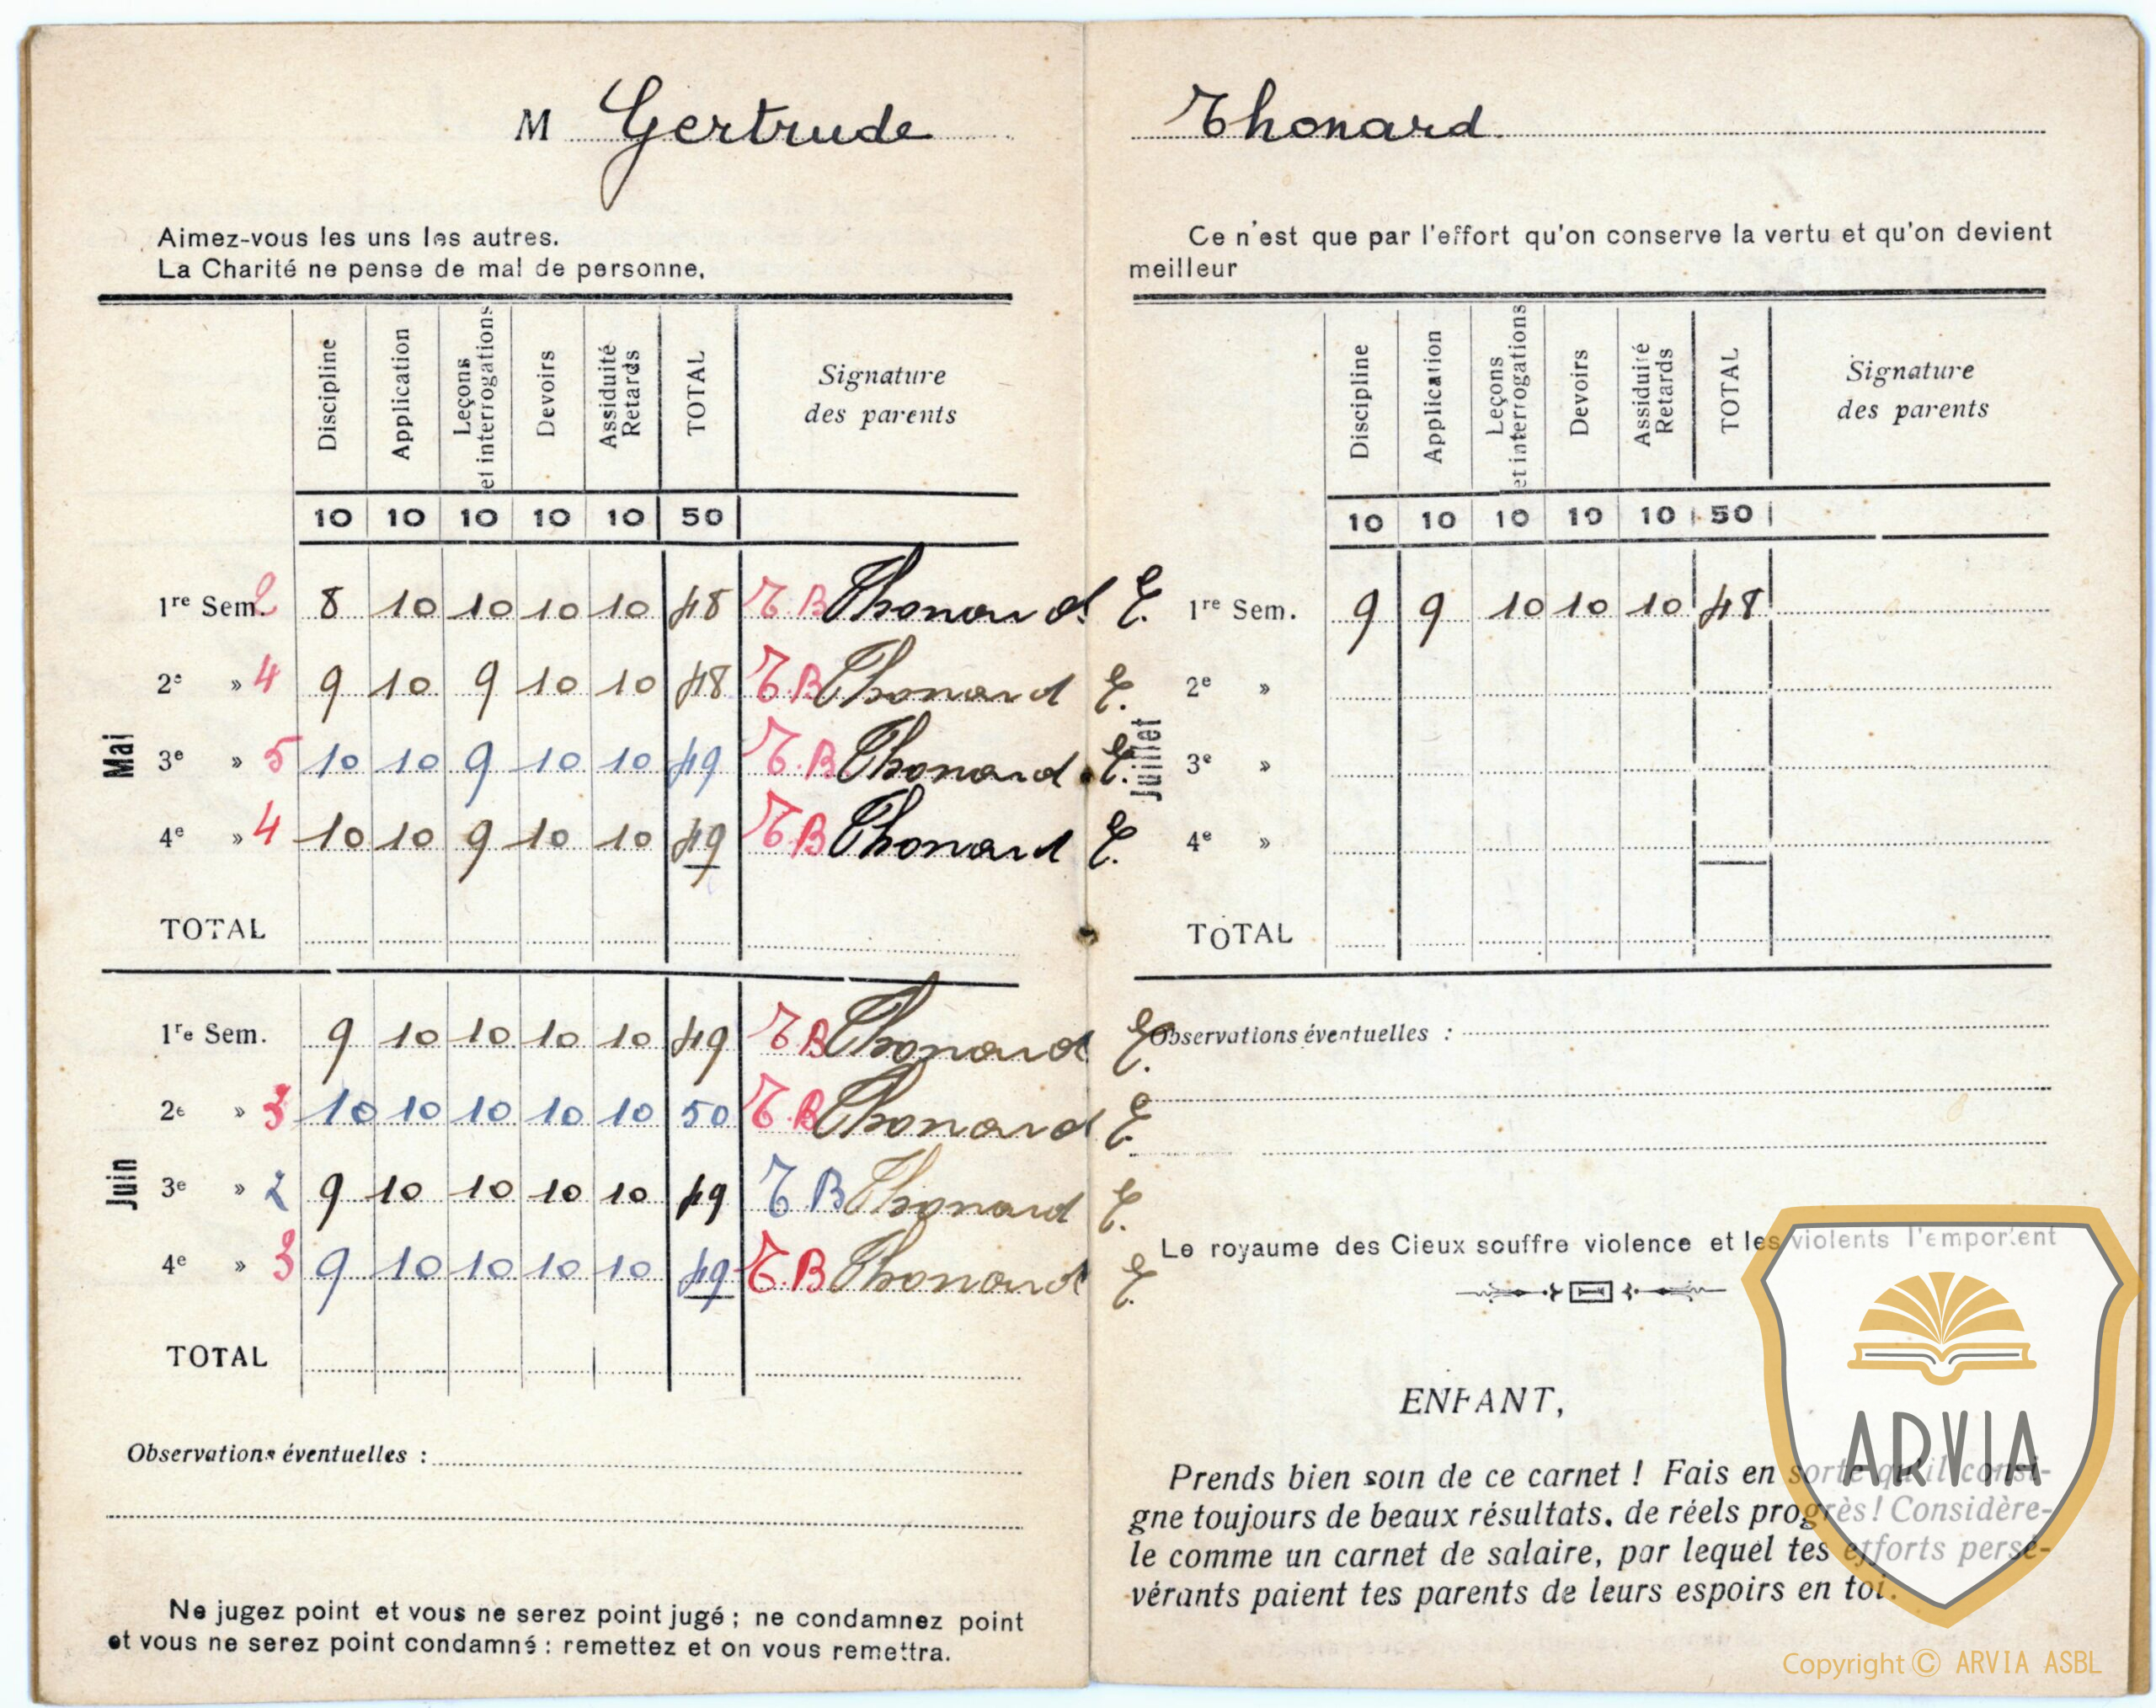 M Gertrude
Aimez-vous les uns les autres.
La Charité ne pense de mal de personne.
Discipline Application Leçons et interrogations Devoirs Assiduité Retards TOTAL Signature des parents
10 10 10 10 10 50
Mai
1re Sem. 2 8 10 10 10 10 48 TB Thonard E.
2e » 4 9 10 9 10 10 48 TB Thonard E.
3e » 5 10 10 9 10 10 49 T.B Thonard. E.
4e » 4 10 10 9 10 10 49 TB Thonard E.
TOTAL
Juin
1re Sem. 9 10 10 10 10 49 TB Thonard E.
2e » 3 10 10 10 10 10 50 T.B Thonard E.
3e » 2 9 10 10 10 10 49 TB Thonard E.
4e » 3 9 10 10 10 10 49 T.B Thonard E.
TOTAL
Observations éventuelles :
Ne jugez point et vous ne serez point jugé ; ne condamnez point
et vous ne serez point condamné : remettez et on vous remettra.
Thonard.
Ce n'est que par l'effort qu'on conserve la vertu et qu'on devient
meilleur
Discipline Application Leçons et interrogations Devoirs Assiduité Retards TOTAL Signature des parents
10 10 10 10 10 50
Juillet
1re Sem. 9 9 10 10 10 48
2e »
3e »
4e »
TOTAL
Observations éventuelles :
Le royaume des Cieux souffre violence et les violents l'emportent
ENFANT,
Prends bien soin de ce carnet ! Fais en sorte qu'il consi-
gne toujours de beaux résultats, de réels progrès ! Considère-
le comme un carnet de salaire, par lequel tes efforts persé-
vérants paient tes parents de leurs espoirs en toi.
ARVIA
Copyright © ARVIA ASBL